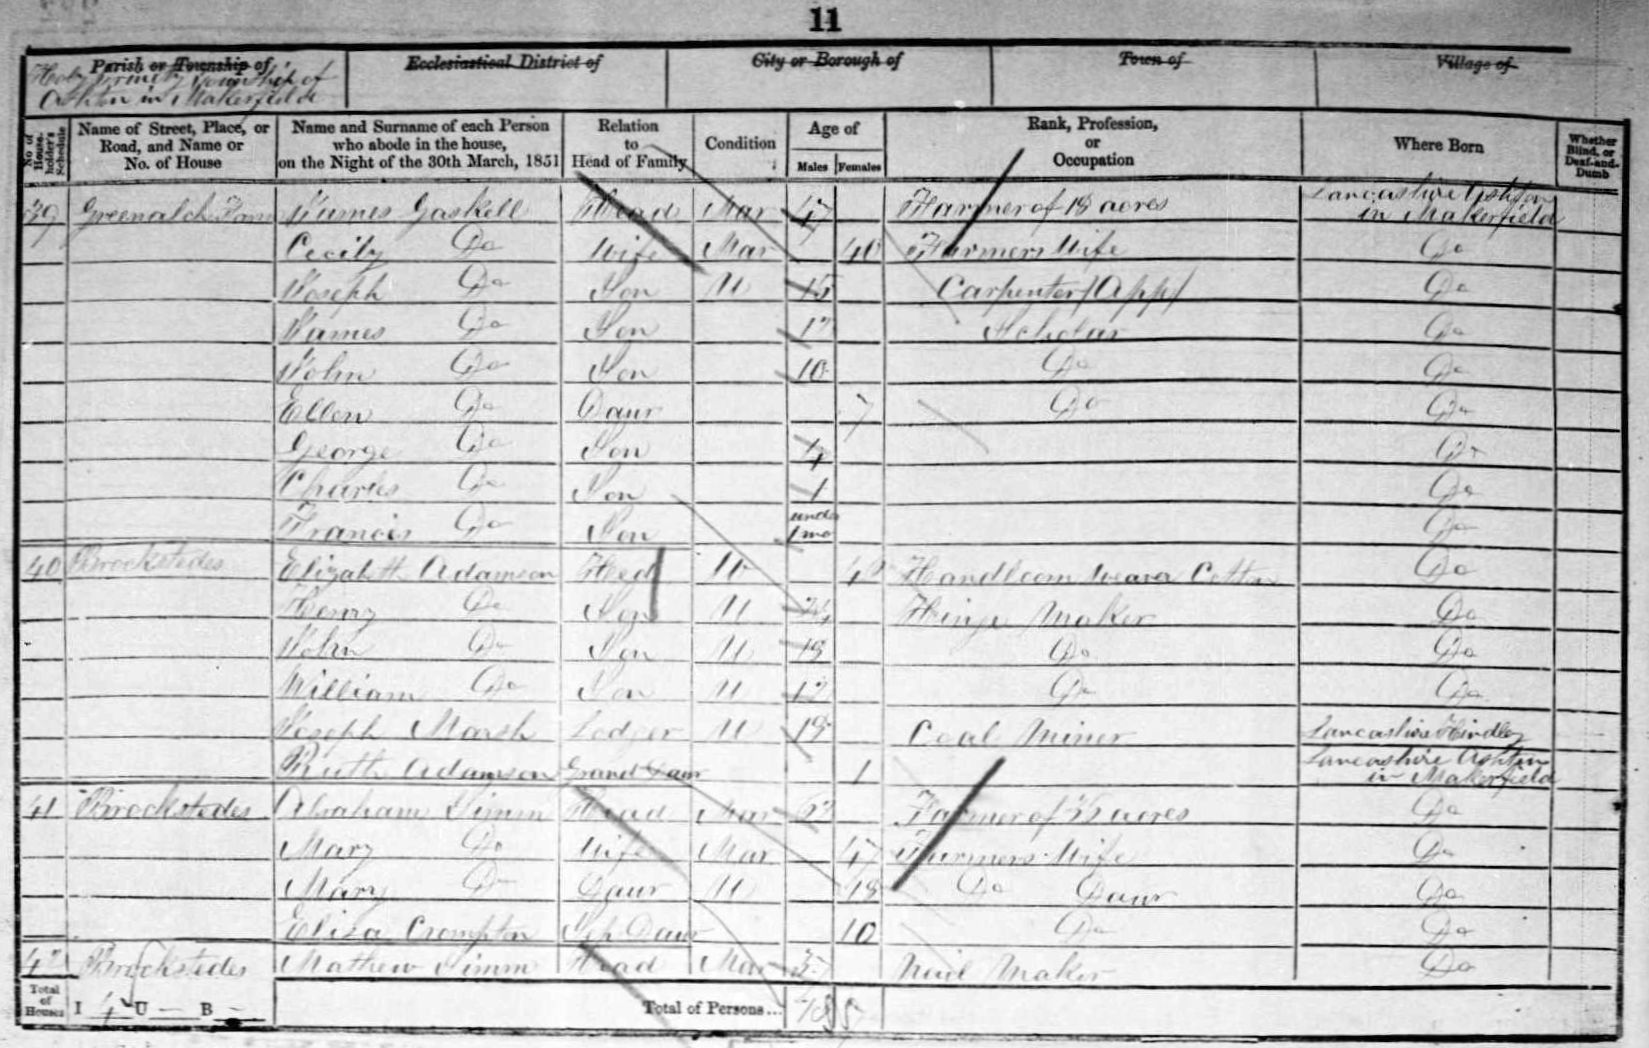 11
Parish or Township of Ecclesiastical District of City or Borough of Town of Village of
Holy Trinity Township of
Ashton in Makerfield
No. of House-holder's Schedule
Name of Street, Place, or Road, and Name or No. of House
Name and Surname of each Person who abode in the house, on the Night of the 30th March, 1851
Relation to Head of Family
Condition
Age of
Males Females
Rank, Profession, or Occupation
Where Born
Whether Blind, or Deaf-and-Dumb
39 James Gaskell Head Mar 47 Farmer of 18 acres Lancashire Ashton in Makerfield
Cecily Do Wife Mar 40 Farmers Wife Do
Joseph Do Son U 15 Carpenter (App) Do
James Do Son 12 Scholar Do
John Do Son 10 Do Do
Ellen Do Daur 7 Do Do
George Do Son 4 Do
Charles Do Son 1 Do
Francis Do Son under 1 mo Do
40 Brockstedes Elizabeth Adamson Head W Handloom Weaver Cotton Do
Henry Do Son U 24 Hinge Maker Do
John Do Son U 18 Do Do
William Do Son U 12 Do Do
Joseph Marsh Lodger U 19 Coal Miner Lancashire Hindley
Ruth Adamson Grand Daur 1 Lancashire Ashton in Makerfield
41 Brockstedes Abraham Simm Head Mar Farmer of acres Do
Mary Do Wife Mar 47 Farmers Wife Do
Mary Do Daur U 18 Do Daur Do
Eliza Crompton Step Daur 10 Do Do
42 Brockstedes Mathew Simm Head Mar Nail Maker Do
Total of Houses I 4 U — B — Total of Persons...